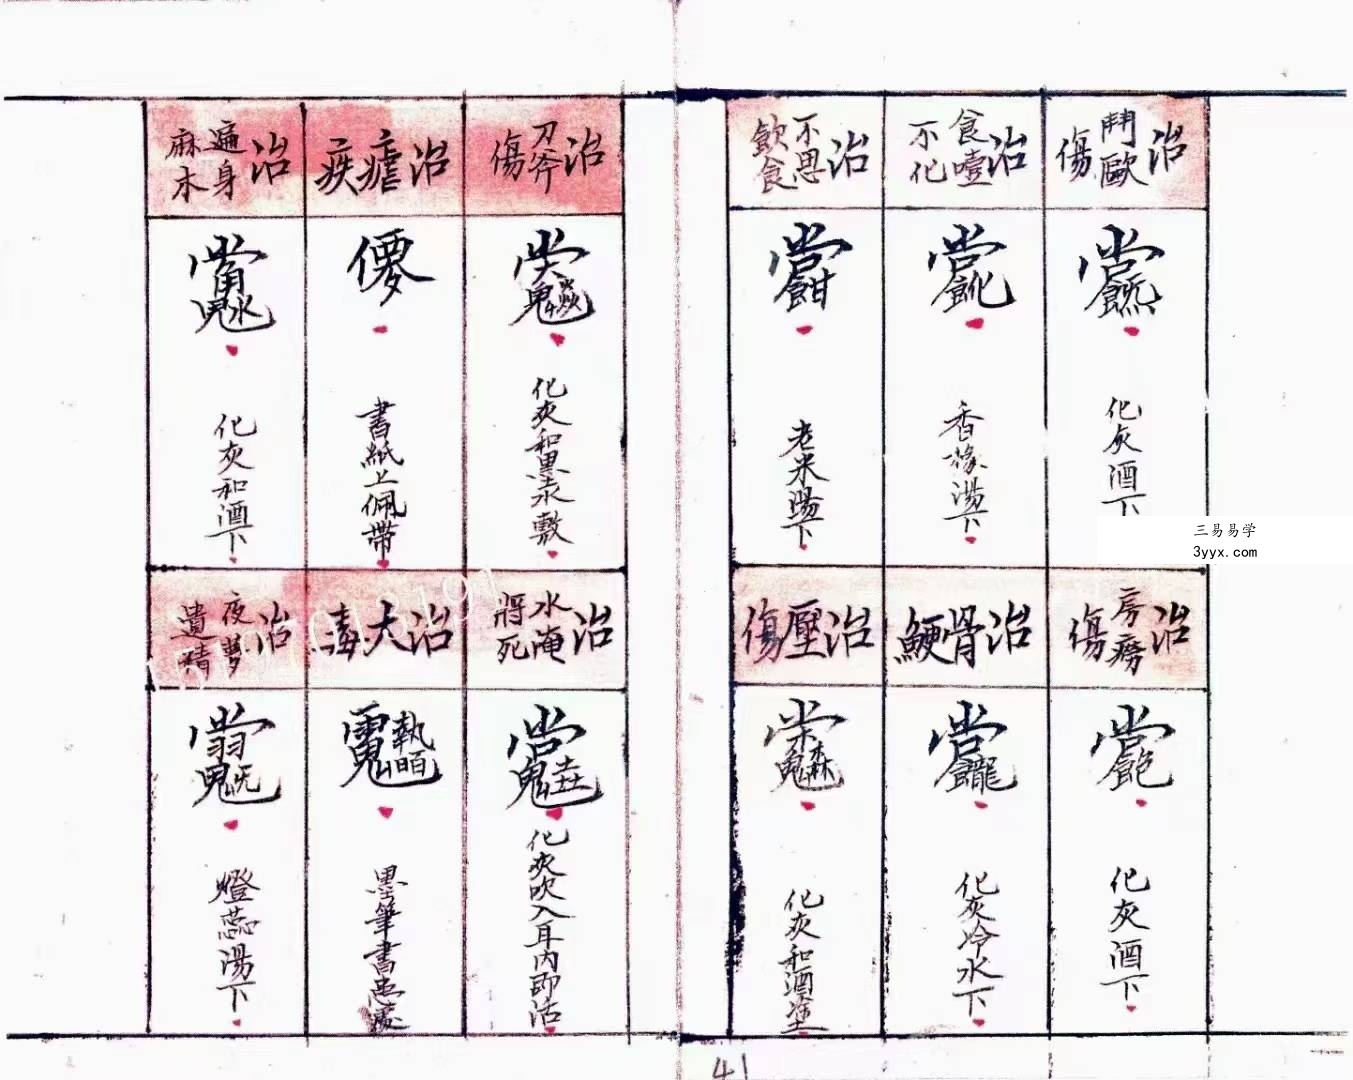 治鬥毆傷
化灰酒下
治食噎不化
香橼湯下
治不思飲食
老米湯下
治房癆傷
化灰酒下
治骨鯁
化灰冷水下
治壓傷
化灰和酒塗
治刀斧傷
化灰和黑水敷
治瘧疾
書紙上佩帶
治遍身麻木
化灰和酒下
治水淹將死
化灰吹入耳內即活
治大毒
墨筆書患處
治夜夢遺精
燈蕊湯下
三易易学
3yyx.com
41